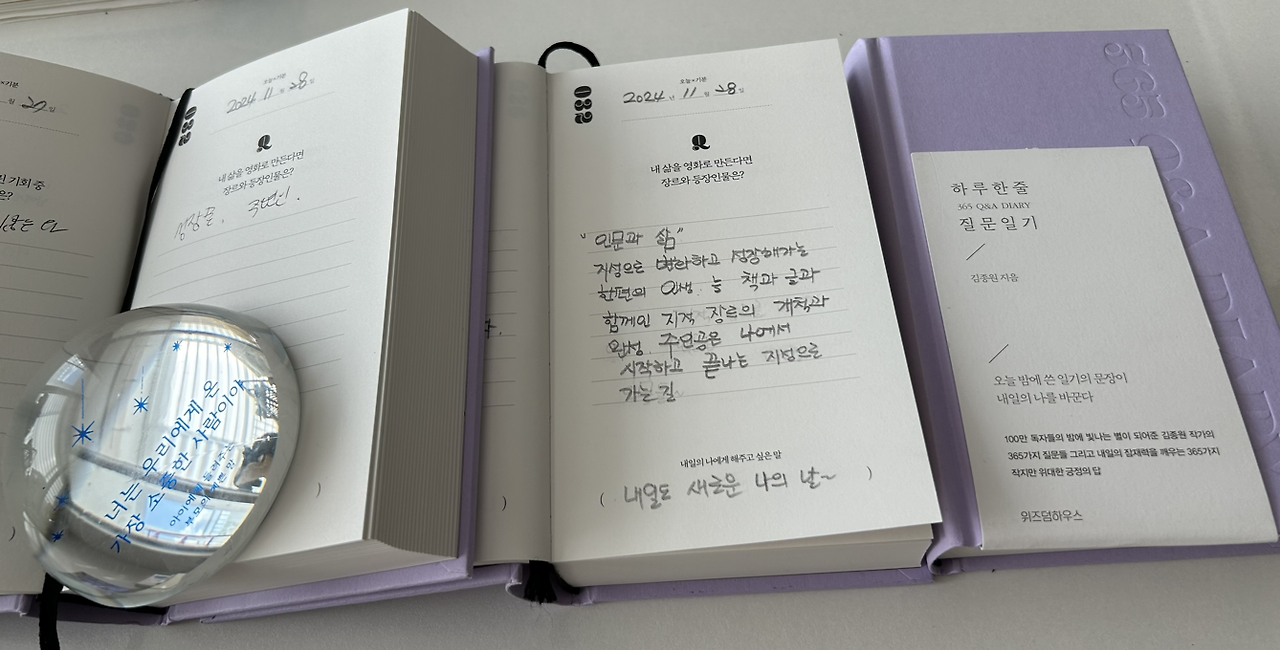 월 20일
인 기회 중
은?
오늘×기분
2024 11월 28일
032
Q
내 삶을 영화로 만든다면
장르와 등장인물은?
성장물.
너는 우리에게 온
가장 소중한 사람이야
아이에게 들려주는
부모의 예쁜 말
오늘×기분
2024년 11월 28일
032
Q
내 삶을 영화로 만든다면
장르와 등장인물은?
"인문과 삶"
지성으로 변화하고 성장해가는
한편의 인생. 늘 책과 글과
함께인 지적 장르의 개척과
완성. 주인공은 나에서
시작하고 끝나는 지성으로
가는 길
내일의 나에게 해주고 싶은 말
( 내일도 새로운 나의 날~ )
365 Q&A DIARY
하루 한 줄
365 Q&A DIARY
질문 일기
김종원 지음
오늘 밤에 쓴 일기의 문장이
내일의 나를 바꾼다
100만 독자들의 밤에 빛나는 별이 되어준 김종원 작가의
365가지 질문들 그리고 내일의 잠재력을 깨우는 365가지
작지만 위대한 긍정의 답
위즈덤하우스